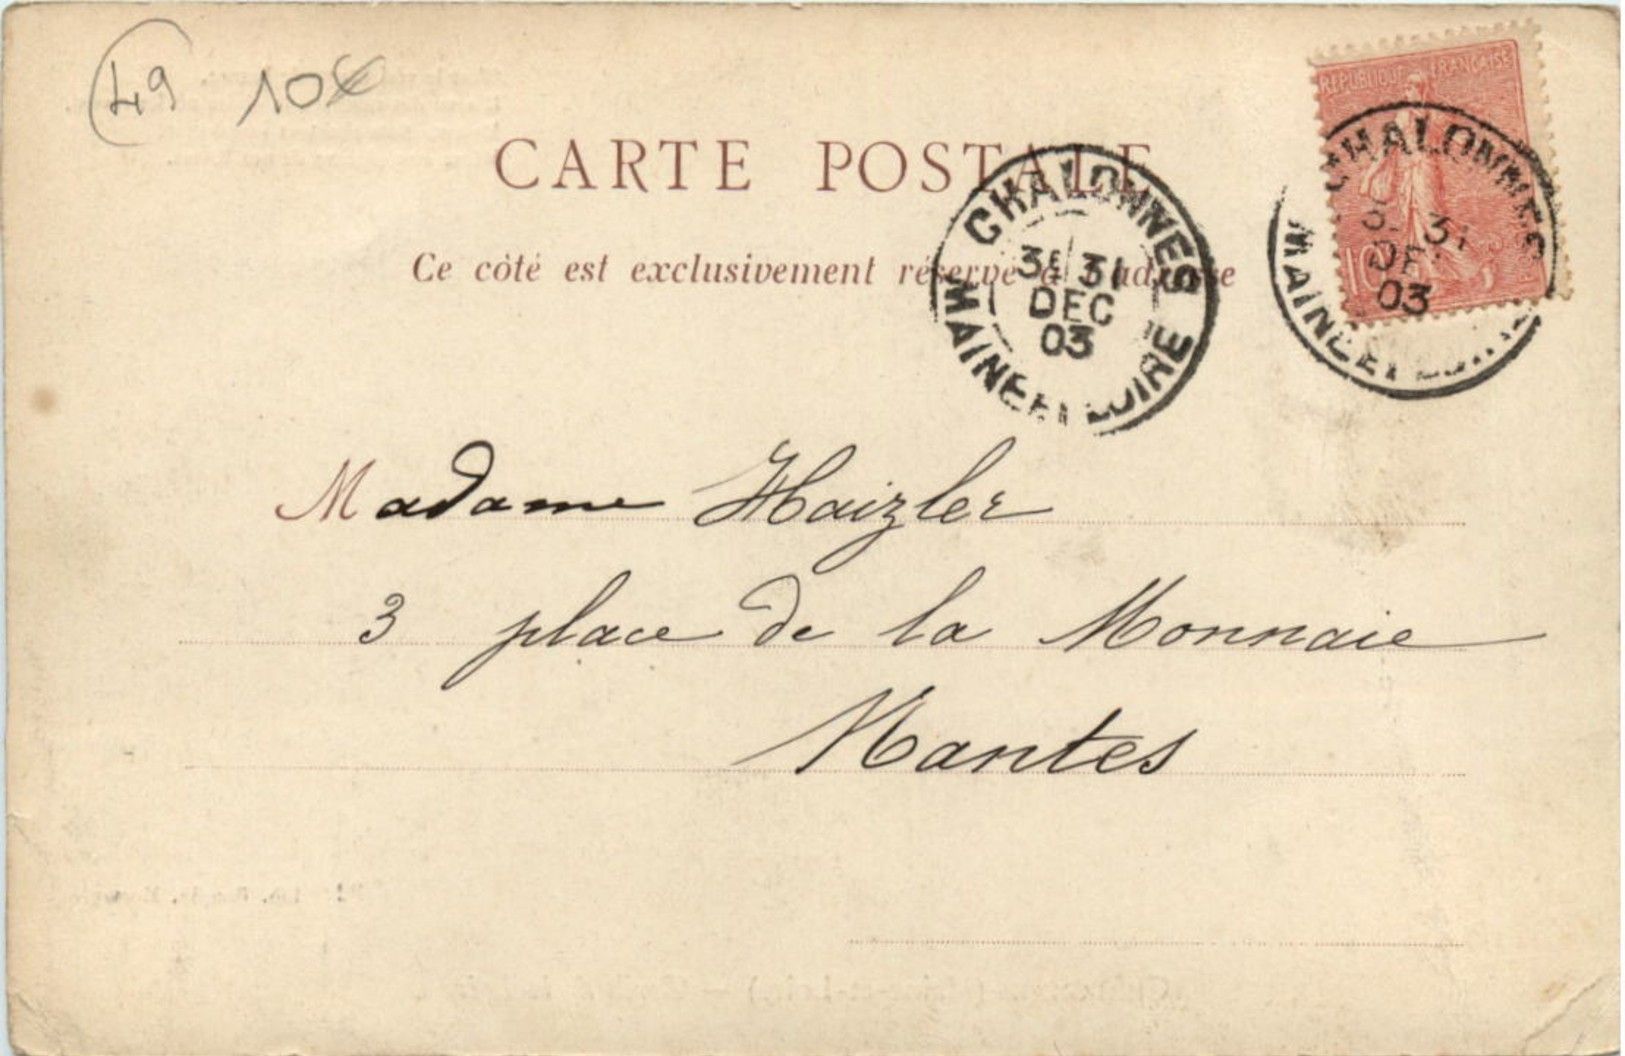 49 10€
CARTE POSTALE
Ce côté est exclusivement réservé à l'adresse
CHALONNES
3E 31
DEC
03
MAINE ET LOIRE
REPUBLIQUE FRANÇAISE
10
CHALONNES
3E 31
DEC
03
MAINE ET LOIRE
Madame Haizler
3 place de la Monnaie
Nantes